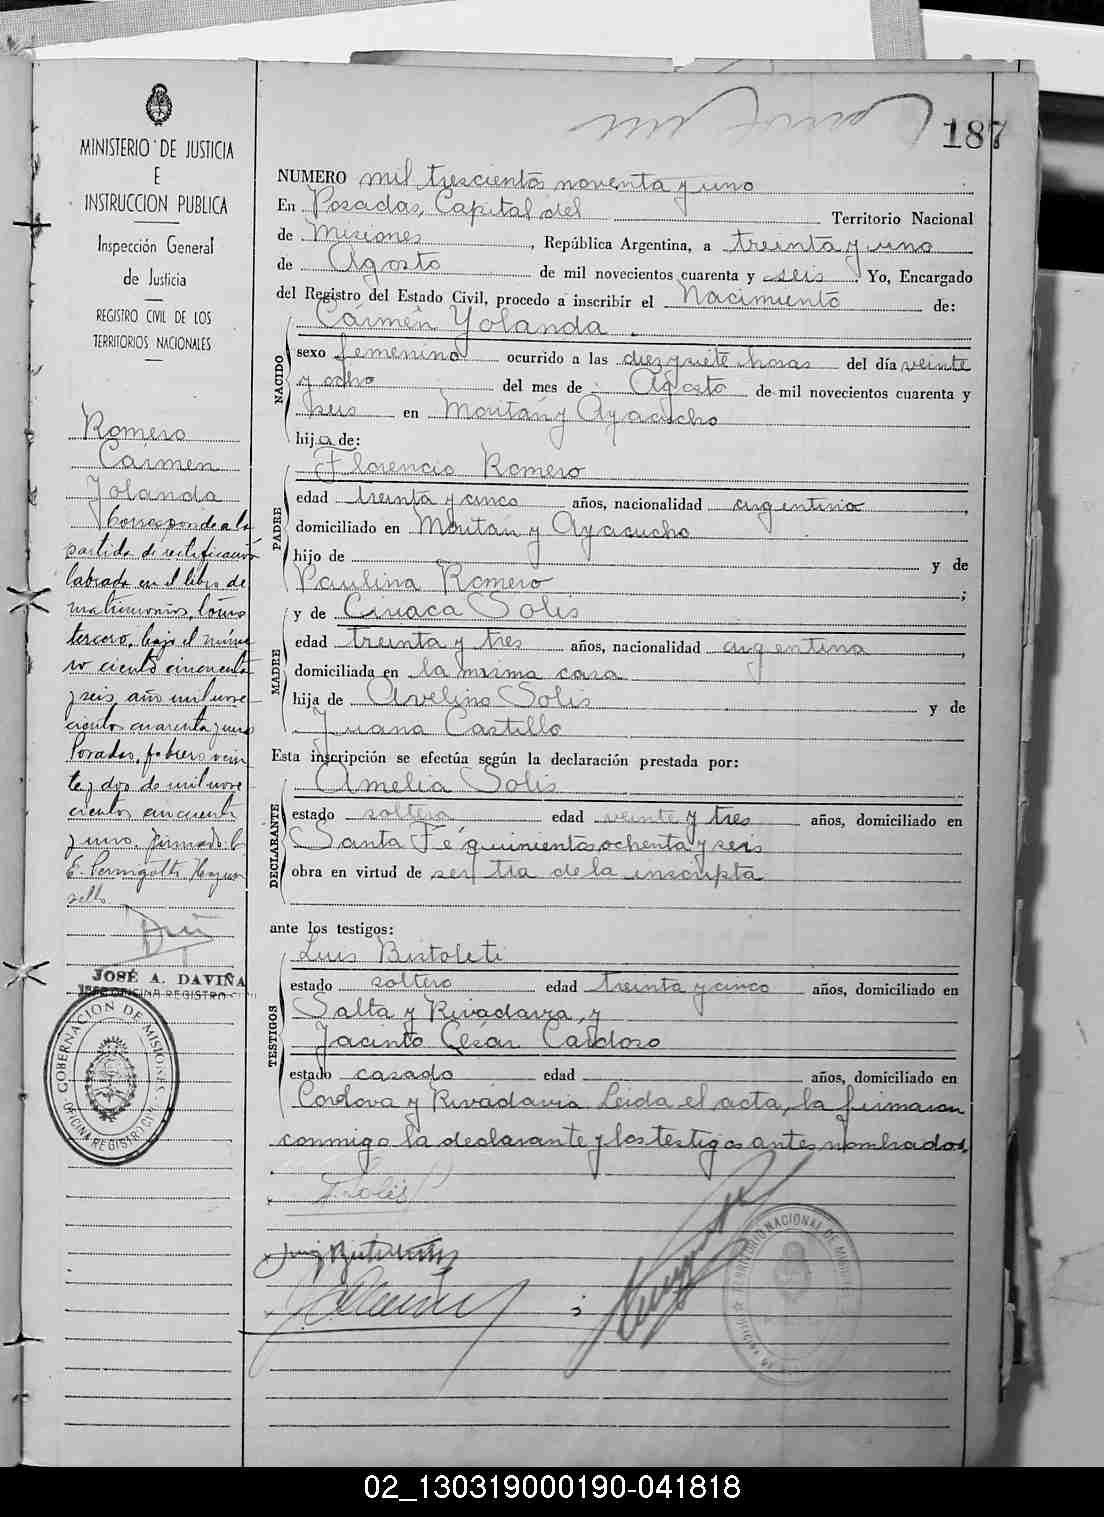 187
MINISTERIO DE JUSTICIA
E
INSTRUCCION PUBLICA
Inspección General
de Justicia
REGISTRO CIVIL DE LOS
TERRITORIOS NACIONALES
Romero
Carmen
Yolanda
Corresponde a la
partida de rectificación
labrada en el libro de
matrimonios, tomo
tercero, bajo el núme
ro ciento cincuenta
y seis año mil nove
cientos cuarenta y uno
Posadas, febrero vein
te y dos de mil nove
cientos cincuenta
y uno. firmado: C.
E. Hay un
sello.
JOSÉ A. DAVIÑA
OFICINA REGISTRO
GOBERNACION DE MISIONES
OFICINA REGISTRO CIVIL
NUMERO mil trescientos noventa y uno
En Posadas, Capital del Territorio Nacional
de Misiones, República Argentina, a treinta y uno
de Agosto de mil novecientos cuarenta y seis. Yo, Encargado
del Registro del Estado Civil, procedo a inscribir el Nacimiento de:
Carmen Yolanda
NACIDO
sexo femenino ocurrido a las diez y siete horas del día veinte
y ocho del mes de Agosto de mil novecientos cuarenta y
seis en Moutan y Ayacucho
hija de:
Florencio Romero
PADRE
edad treinta y cinco años, nacionalidad argentino,
domiciliado en Moutan y Ayacucho
hijo de y de
Paulina Romero;
y de Ciriaca Solis
MADRE
edad treinta y tres años, nacionalidad argentina,
domiciliada en la misma casa
hija de Avelino Solis y de
Juana Castillo
Esta inscripción se efectúa según la declaración prestada por:
Amelia Solis
DECLARANTE
estado soltera edad veinte y tres años, domiciliado en
Santa Fé quinientos ochenta y seis
obra en virtud de ser tia de la inscripta
ante los testigos:
Luis Bistoleti
TESTIGOS
estado soltero edad treinta y cinco años, domiciliado en
Salta y Rivadavia, y
Jacinto César Cardozo
estado casado edad años, domiciliado en
Cordova y Rivadavia Leida el acta, la firmaron
conmigo la declarante y los testigos antes nombrados.
Solis
TERRITORIO NACIONAL DE MISIONES
02_130319000190-041818